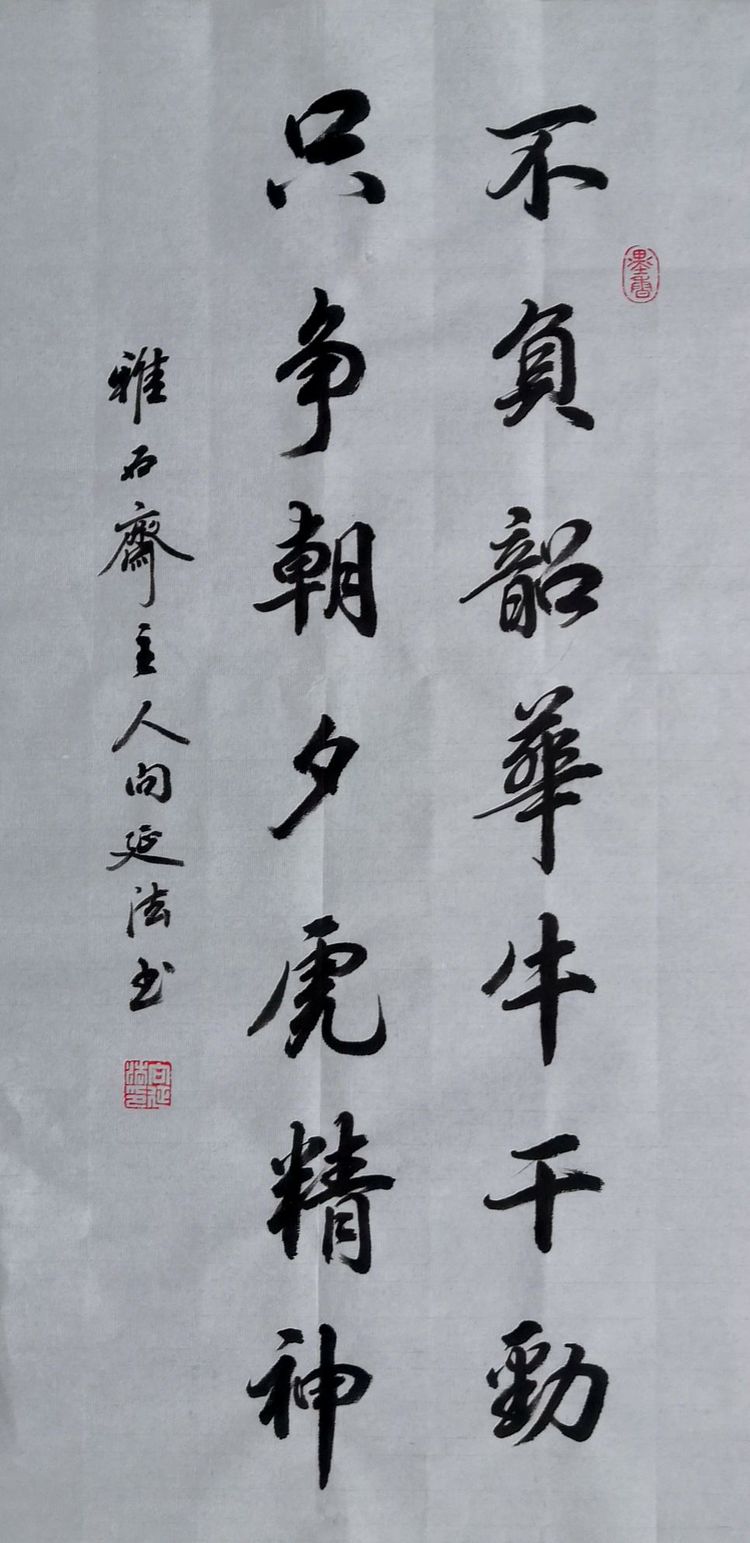 不負韶華牛干勁
只争朝夕虎精神
雅石齋主人向延法书
墨香
向延法印